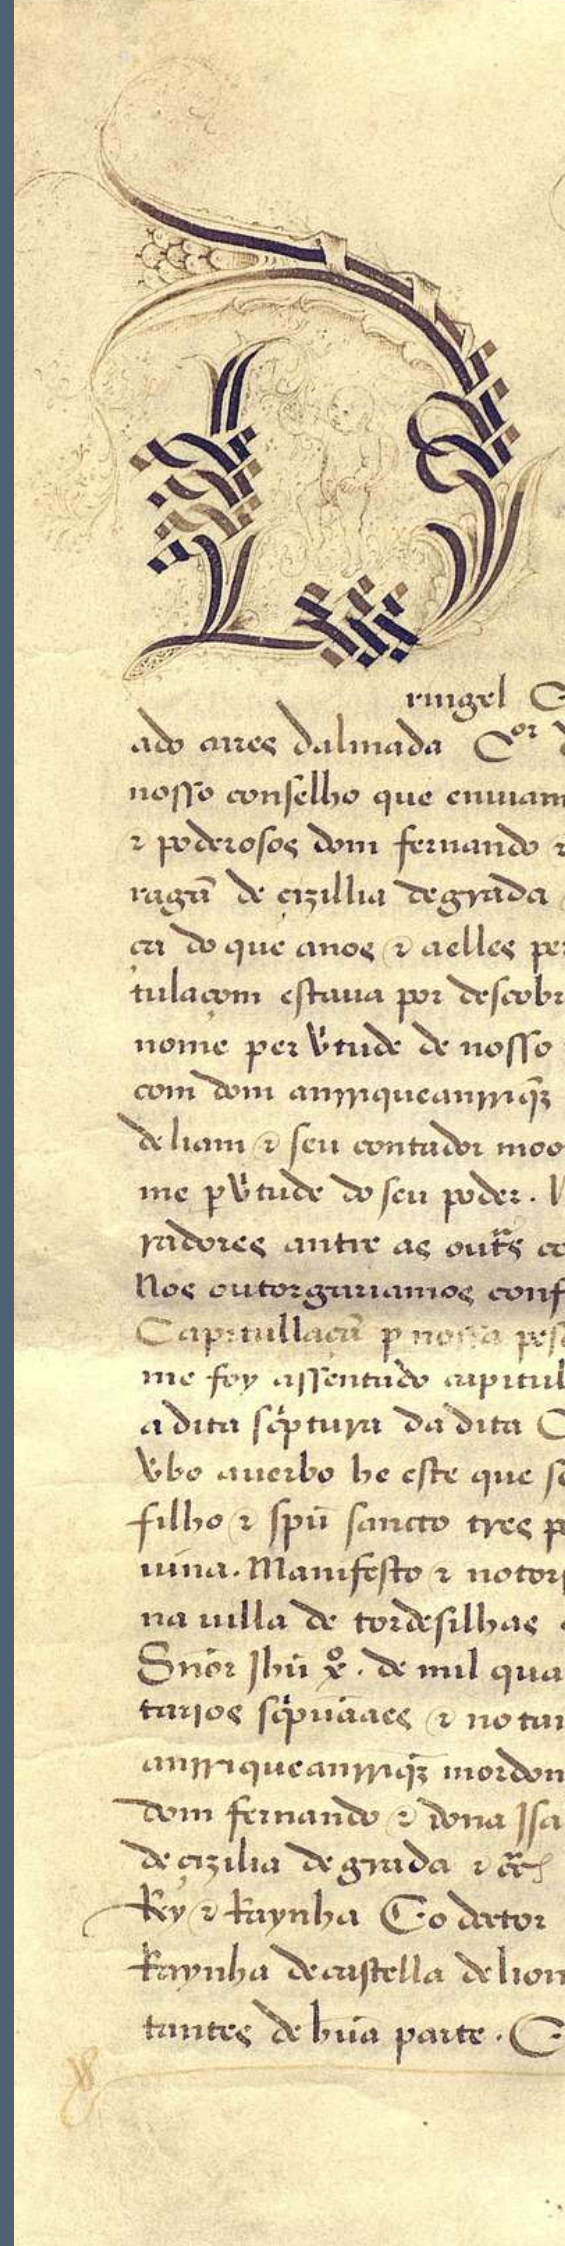 D
ringel
ado aires dalmada Cor d
nosso conselho que enuiam
⁊ poderosos dom fernando ⁊
ragã de cizillia de grada
ca do que a nos ⁊ a elles per
tulacom estaua por descobr
nome per v̾tude de nosso
com dom anrrique anrriq̃z
de liam ⁊ seu contador moo
me p v̾tude do seu poder.
radores antre as outs̃ co
Nos outorgariamos conf
Capitullaçã p nossa pes
me foy assentado capitul
a dita scptura da dita C
v̾bo a uerbo he este que se
filho ⁊ spũ sancto tres p
uina. Manifesto ⁊ notori
na uilla de tordesilhas
Snor Jhũ xº. de mil qua
tarios scpuãaes ⁊ notar
anrrique anrriq̃z mordom
dom fernando ⁊ dona Isa
de cizilia de grada ⁊ cc̃
Rey ⁊ Raynha Co doctor
Raynha de castella de liom
tantes de hũa parte. E